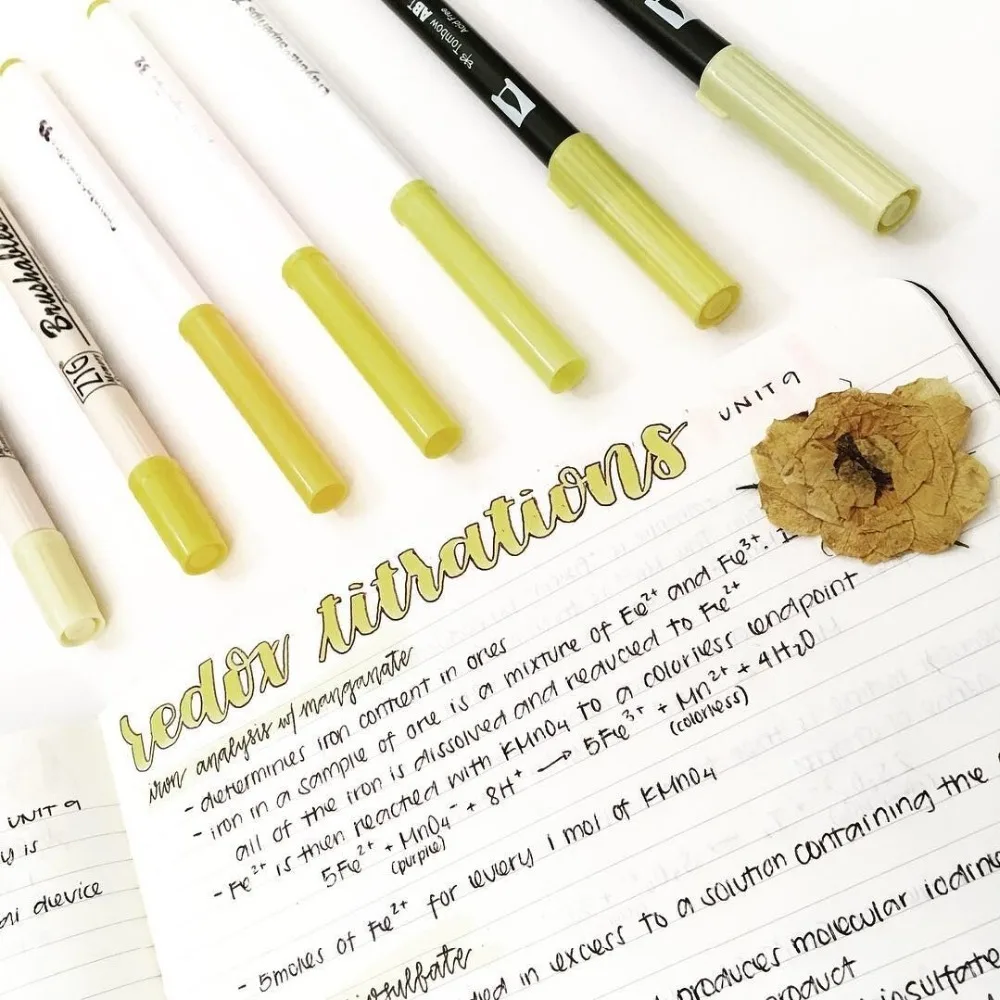 Tombow ABT
Acid Free
ZIG
Brushables
UNIT 9
redox titrations
iron analysis w/ manganate
- determines iron content in ores
- iron in a sample of ore is a mixture of Fe²⁺ and Fe³⁺.
all of the iron is dissolved and reduced to Fe²⁺
- Fe²⁺ is then reacted with KMnO4 to a colorless endpoint
5Fe²⁺ + MnO₄⁻ + 8H⁺ → 5Fe³⁺ + Mn²⁺ + 4H₂O
(purple) (colorless)
- 5 moles of Fe²⁺ for every 1 mol of KMnO4
in excess to a solution containing the
produces molecular
product
UNIT 9
is
device